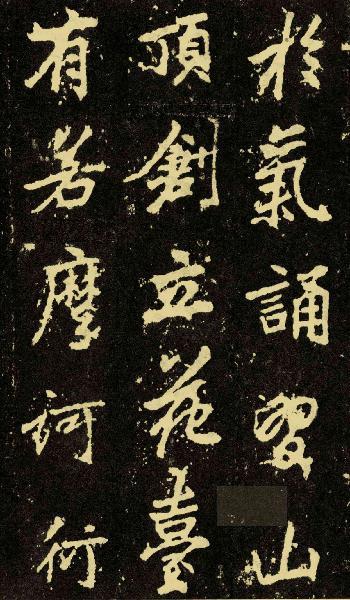 於氣誦習山
頂創立花臺
有若摩訶衍